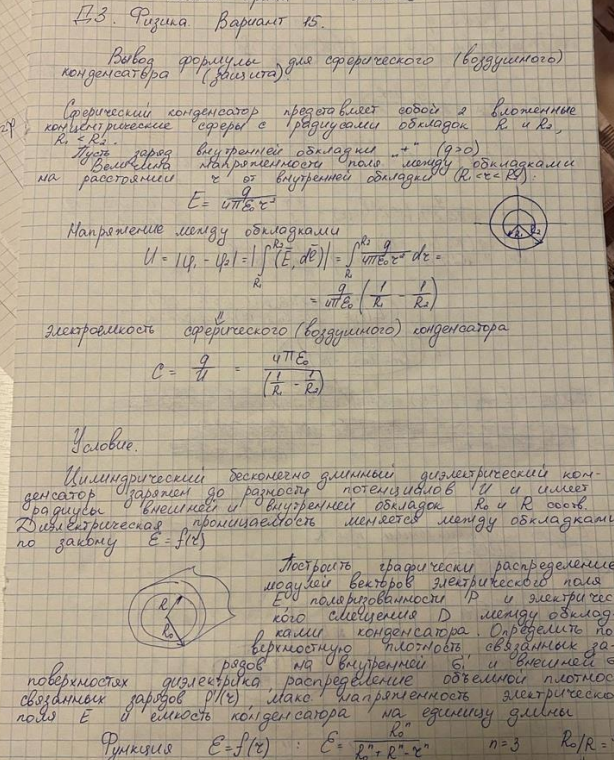 ДЗ. Физика. Вариант 15.
Вывод формулы для сферического (воздушного)
конденсатора (защита).
Сферический конденсатор представляет собой 2 вложенные
концентрические сферы с радиусами обкладок R₁ и R₂,
R₁ < R₂.
Пусть заряд внутренней обкладки "+" (q>0)
Величина напряженности поля между обкладками
на расстоянии r от внутренней обкладки (R₁<r<R₂):
E = q / 4πε₀r²
R₁
Напряжение между обкладками
U = |φ₁ - φ₂| = |∫_{R₁}^{R₂} (Ē, dē)| = ∫_{R₁}^{R₂} q / 4πε₀r² dr =
= q / 4πε₀ (1/R₁ - 1/R₂)
Электроемкость сферического (воздушного) конденсатора
C = q/U = 4πε₀ / (1/R₁ - 1/R₂)
Условие.
Цилиндрический бесконечно длинный диэлектрический кон-
денсатор заряжен до разности потенциалов U и имеет
радиусы внешней и внутренней обкладок R₀ и R соотв.
Диэлектрическая проницаемость меняется между обкладками
по закону ε = f(r)
R
R₀
Построить графически распределение
модулей векторов электрического поля
E поляризованности P и электричес-
кого смещения D между обклад-
ками конденсатора. Определить по-
верхностную плотность связанных за-
рядов на внутренней σ₁' и внешней
поверхностях диэлектрика распределение объемной плотнос
связанных зарядов ρ'(r) макс напряженность электрическо
поля E и емкость конденсатора на единицу длины
Функция ε = f(r) : ε = R₀ⁿ / R₀ⁿ + Rⁿ - rⁿ n = 3 R₀/R =